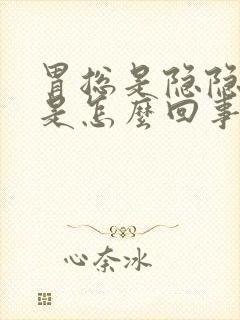 胃总是隐隐
是怎麼回事
心奈冰